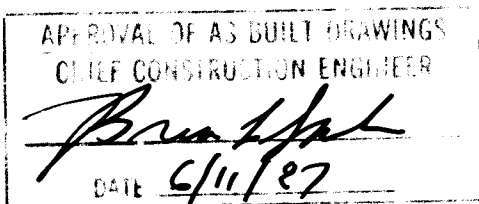 APPROVAL OF AS BUILT DRAWINGS
CHIEF CONSTRUCTION ENGINEER
DATE 6/11/87